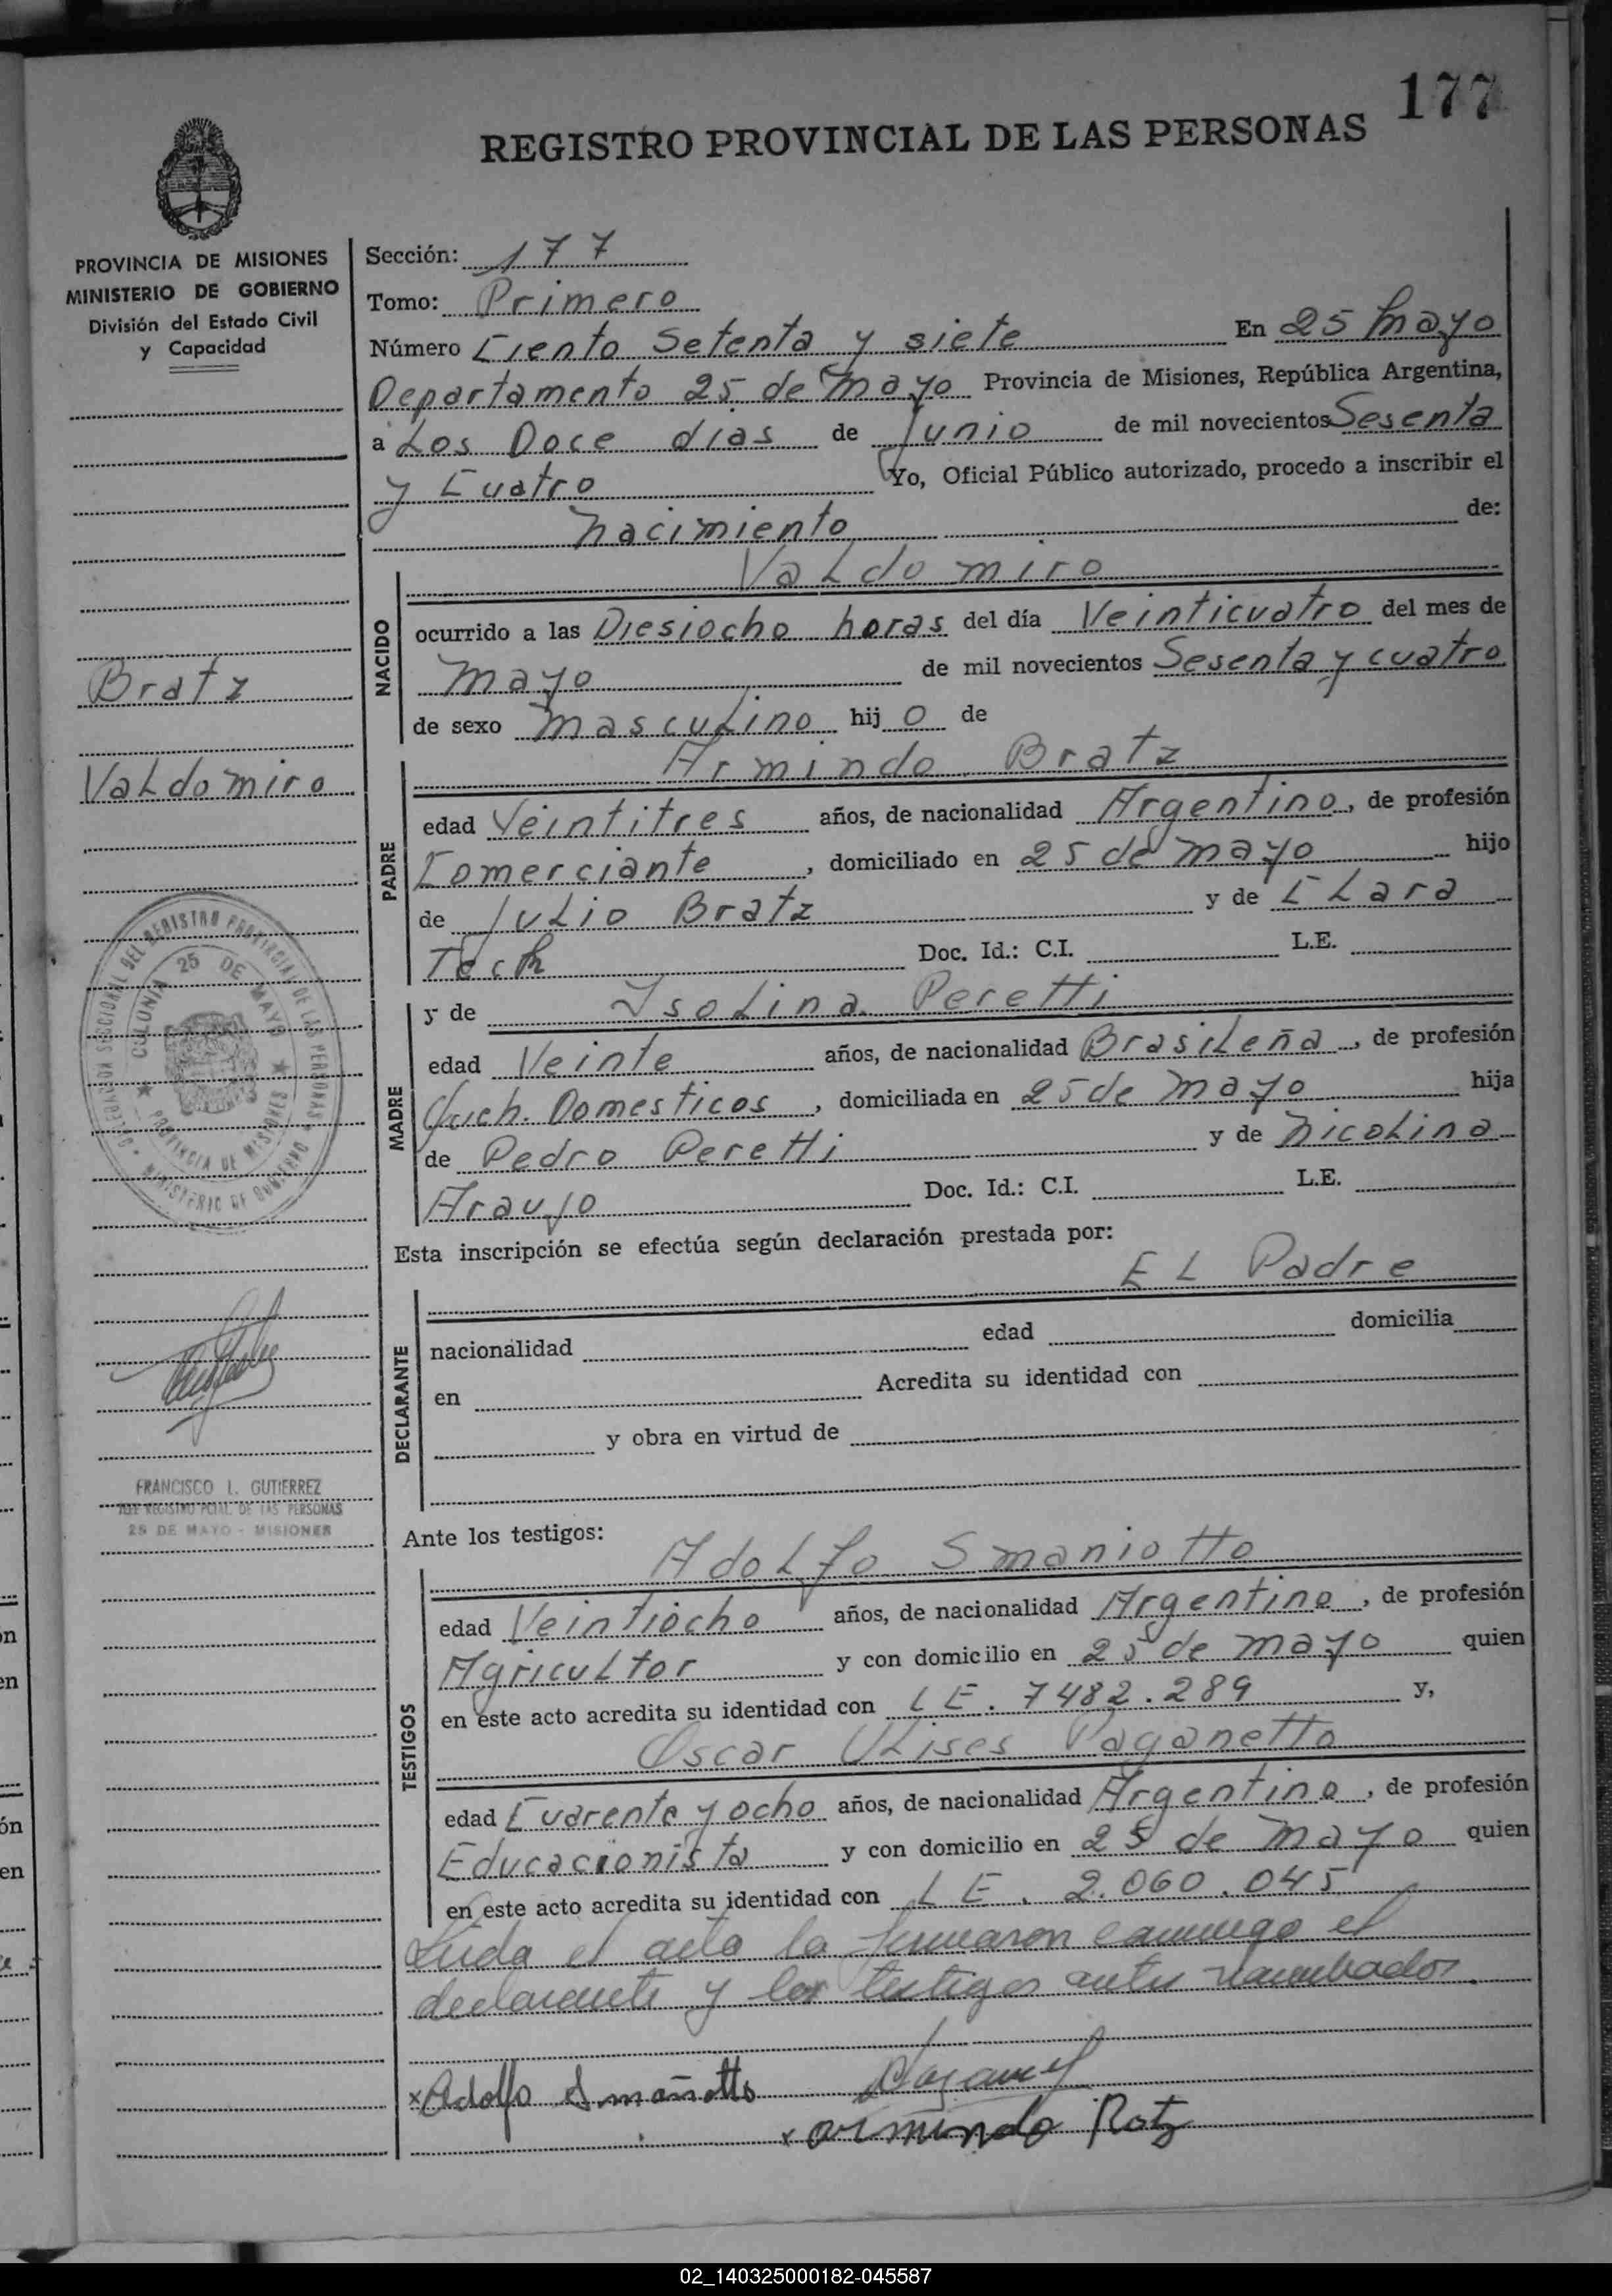 177
REGISTRO PROVINCIAL DE LAS PERSONAS
PROVINCIA DE MISIONES
MINISTERIO DE GOBIERNO
División del Estado Civil
y Capacidad
Bratz
Valdomiro
COLONIA 25 DE MAYO
PROVINCIA DE MISIONES
FRANCISCO L. GUTIERREZ
JEFE REGISTRO PCIAL. DE LAS PERSONAS
25 DE MAYO - MISIONES
Sección: 177
Tomo: Primero
Número Ciento Setenta y siete En 25 Mayo
Departamento 25 de Mayo Provincia de Misiones, República Argentina,
a Los Doce días de Junio de mil novecientos Sesenta
y Cuatro Yo, Oficial Público autorizado, procedo a inscribir el
Nacimiento de:
NACIDO
Valdomiro
ocurrido a las Diesiocho horas del día Veinticuatro del mes de
Mayo de mil novecientos Sesenta y cuatro
de sexo Masculino hij o de
PADRE
Armindo Bratz
edad Veintitres años, de nacionalidad Argentino, de profesión
Comerciante, domiciliado en 25 de Mayo hijo
de Julio Bratz y de Clara
Tech Doc. Id.: C.I. L.E.
MADRE
y de Isolina Peretti
edad Veinte años, de nacionalidad Brasileña, de profesión
Queh. Domesticos, domiciliada en 25 de Mayo hija
de Pedro Peretti y de Nicolina
Araujo Doc. Id.: C.I. L.E.
Esta inscripción se efectúa según declaración prestada por:
DECLARANTE
El Padre
nacionalidad edad domicilia
en Acredita su identidad con
y obra en virtud de
Ante los testigos:
TESTIGOS
Adolfo Smaniotto
edad Veintiocho años, de nacionalidad Argentino, de profesión
Agricultor y con domicilio en 25 de Mayo quien
en este acto acredita su identidad con LE. 7482.289 y,
Oscar Ulises Paganetto
edad Cuarenta y ocho años, de nacionalidad Argentino, de profesión
Educacionista y con domicilio en 25 de Mayo quien
en este acto acredita su identidad con LE. 2.060.045
Leida el acta la firmaron conmigo el
declarante y los testigos antes nombrados.
x Adolfo Smañotto
x armindo Ratz
02_140325000182-045587